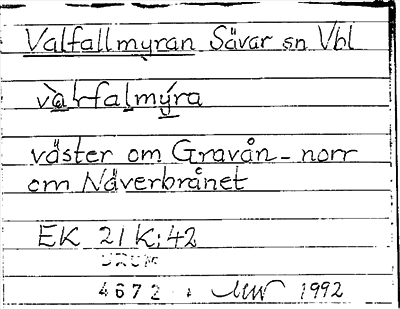 Valfallmyran Sävar sn Vbl
vàrfalmýra
väster om Gravån - norr
om Näverbrånet
EK 21 K:42
4672 1992